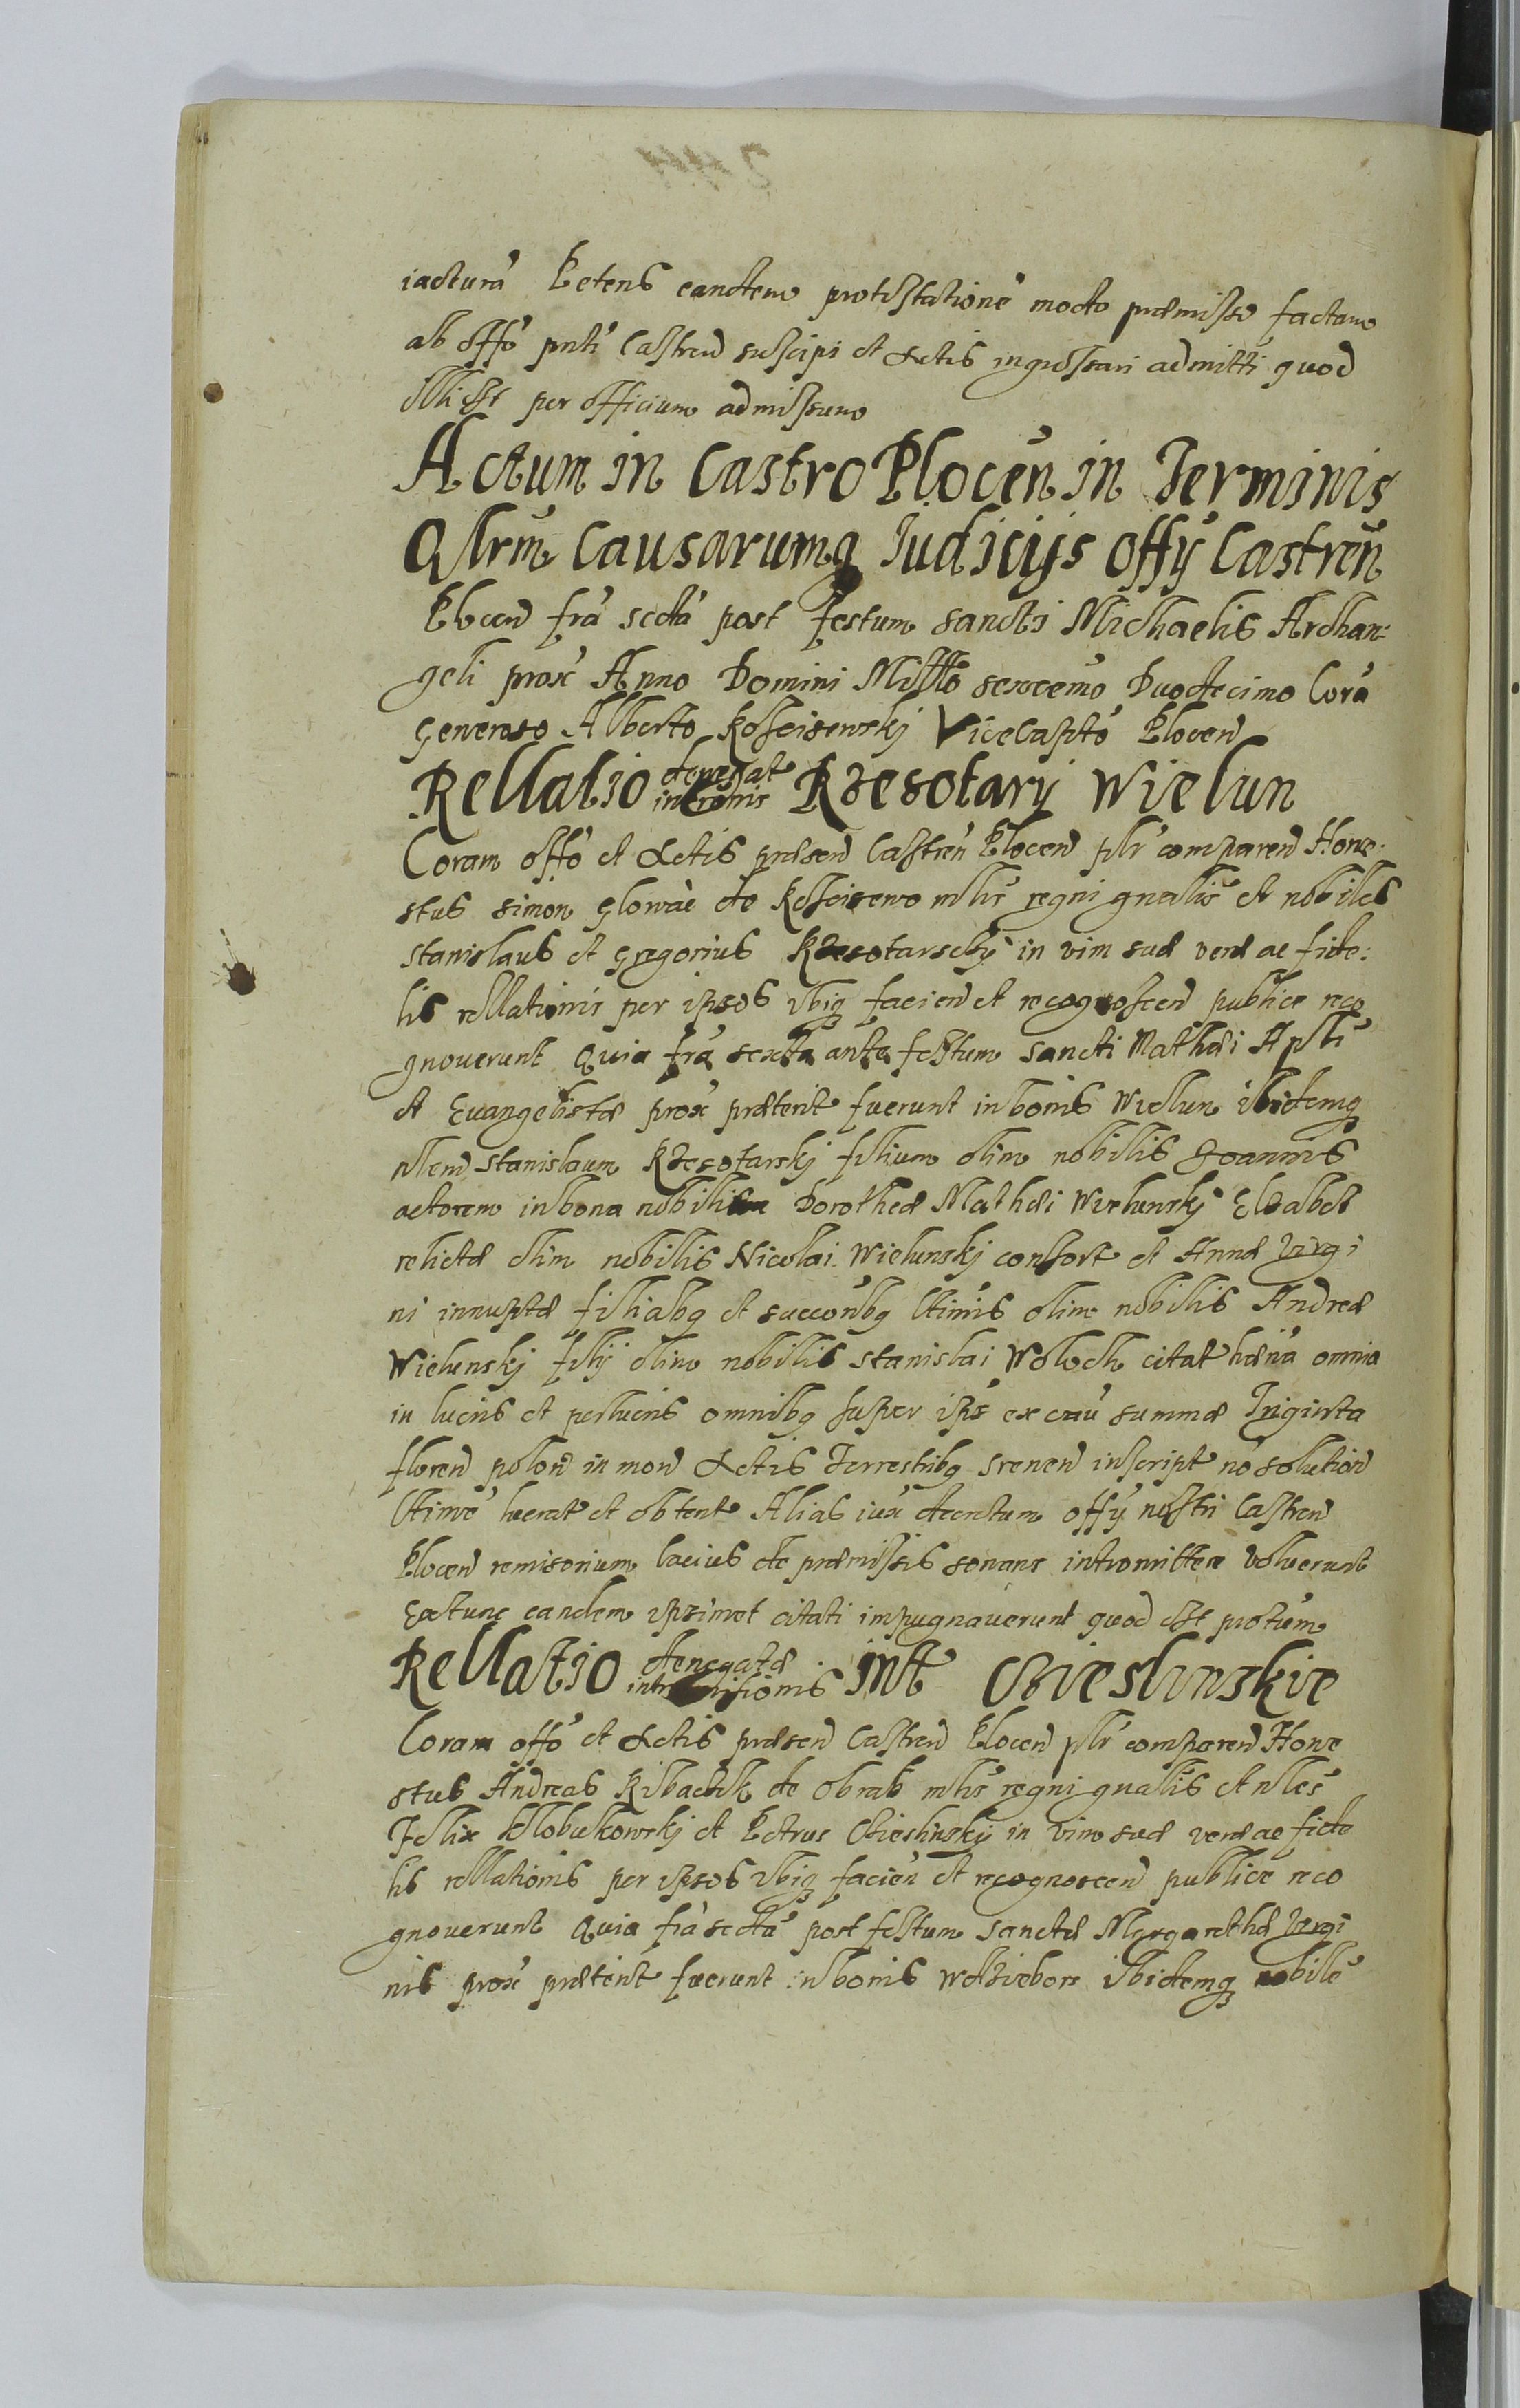 iacturā Petens eandem protestationē modo præmisso factam
ab offō pnti Castren suscipi et Actis ingrossari admitti quod
illi est per officium admissum
Actum in Castro Plocen in Terminis
Qlrm Causarumq Iudicijs offÿ Castren
Plocen frā sectā post festum sancti Michaelis Archan:
geli prox Anno Domini Millo sexcemo Duodecimo Corā
Generoso Alberto Kosciserski ViceCaptō Plocen
Rellatio denegat intromis Rzesotarÿ Wielun
Coram offō et Actis præsen Castren Plocen plr comparen Hone:
stus simon Glowac de Kosciserwo mlis regni gnalis et nobiles
stanislaus et Gregorius Rzesotarsckÿ in vim suæ veræ ac fide:
lis rellationis per ipsos ibiq facien et recognoscen publice reco
gnoverunt Quia frā sexta ante festum sancti Mathæi Apli
et Evangelistæ prox præterit fuerunt in bonis Wielun ibidemq
nlem stanislaum Rzesotarskj filium olim nobilis Joannis
actorem in bona nobilium Dorotheæ Mathæi Wielunskj Elzabet
relictæ olim nobilis Nicolai Wielunskj consort et Annæ virgi
ni innuptæ filiabq et succoribq ltimis olim nobilis Andreæ
Wielunskj filij olim nobilis stanislai Woloch citat omnia
in lucris et perlucris omnibq super ips ex summæ Triginta
floren polon in mon Actis Terrestribq srenen inscript nō solution
ltime lucrat et obtent Alias iux decretum offÿ nostri Castren
Plocen remisorium lacius de præmissis sonans intromittere voluerunt
Extunc eandem ipsimet citati impugnaverunt quod est protum
Rellatio denegatæ intromissionis int Cieslinskie
Coram offō et Actis præsen Castren Plocen plr comparen Hone
stus Andreas Ribaczik de Obrab mlis regni gnalis et nles
Felix Klobukowskj et Petrus Cieslinskÿ in vim suæ veræ ac fide
lis rellationis per ipsos ibiq facien et recognoscen publice reco
gnoverunt Quia frā sectā post festum sanctæ Margarethæ virgi
nis prox præterit fuerunt in bonis Wdzieborz ibidemq nobile